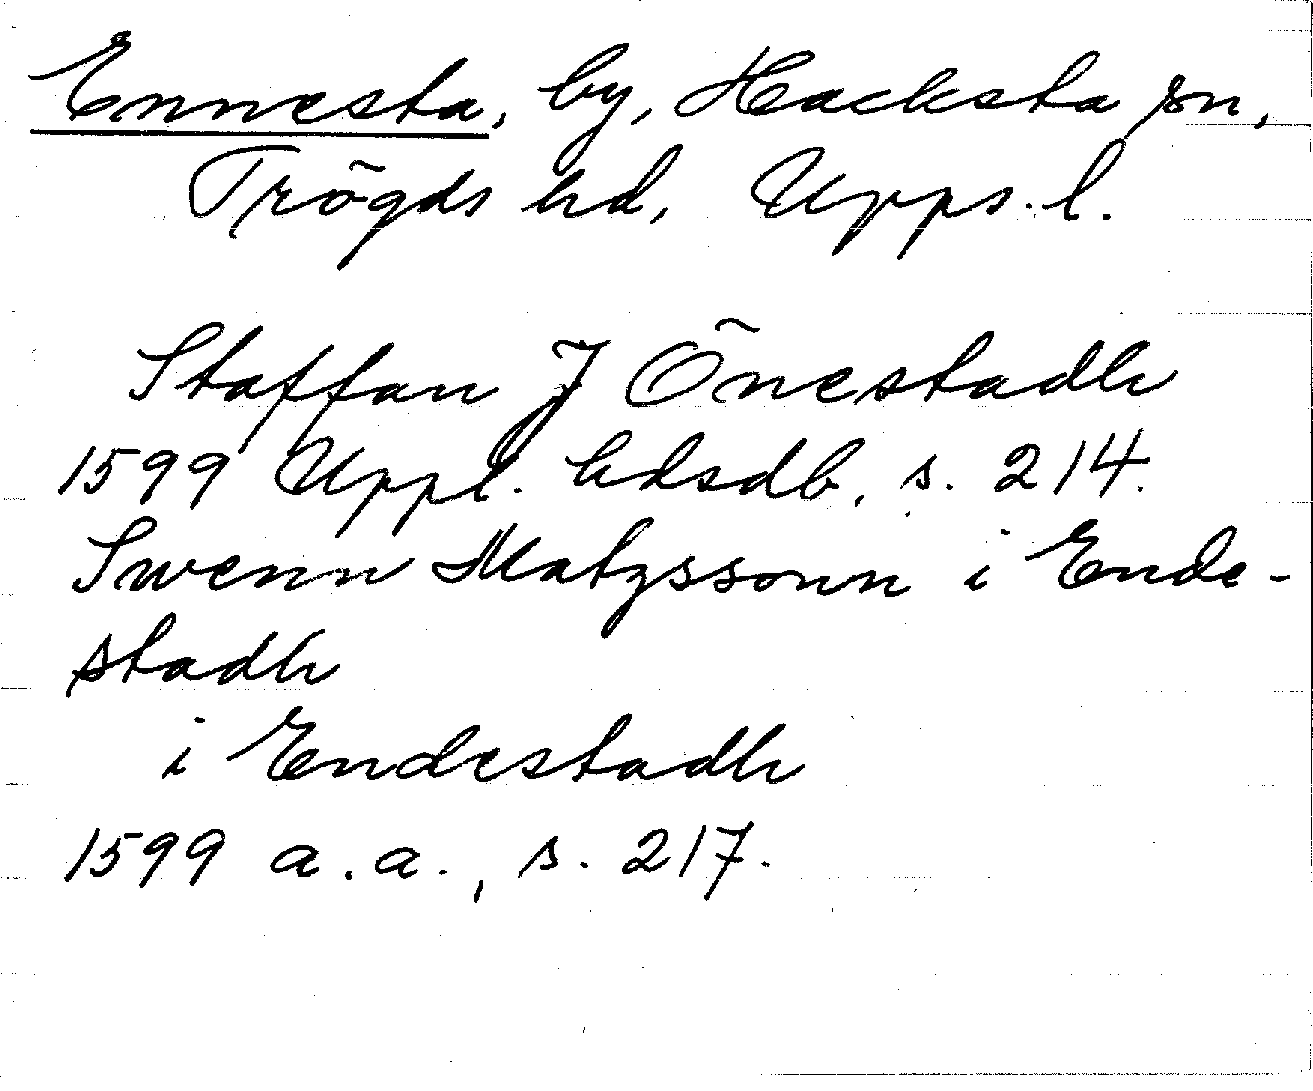 Ennesta, by, Hacksta sn,
Trögds hd, Upps. l.
Staffan J Önestadh
1599 Uppl. hdsdb, s. 214.
Swenn Matzssonn i Ende-
stadh
i Endestadh
1599 a.a., s. 217.